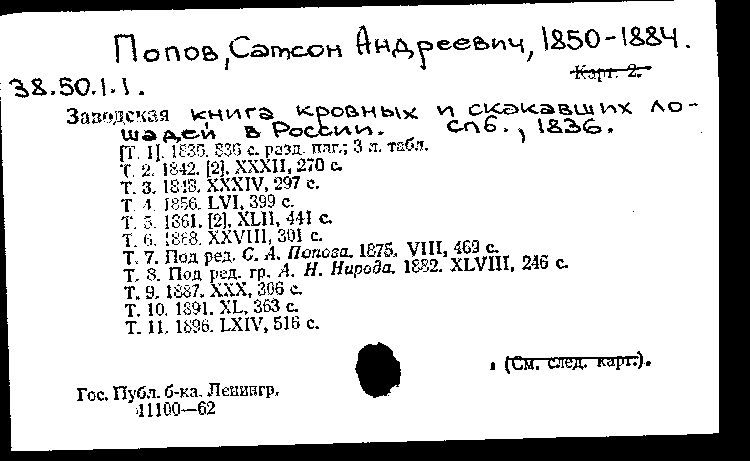 Попов, Самсон Андреевич, 1850-1884.
Карт. 2.
38.50.1.1.
Заводская книга кровных и скакавших ло-
шадей в России. СПб., 1836.
[Т. 1]. 1836. 836 с. разд. паг.; 3 л. табл.
Т. 2. 1842. [2], XXXII, 270 с.
Т. 3. 1848. XXXIV, 297 с.
Т. 4. 1856. LVI, 399 с.
Т. 5. 1861. [2], XLII, 441 с.
Т. 6. 1868. XXVIII, 301 с.
Т. 7. Под ред. С. А. Попова. 1875. VIII, 469 с.
Т. 8. Под ред. гр. А. Н. Нирода. 1882. XLVIII, 246 с.
Т. 9. 1887. XXX, 306 с.
Т. 10. 1891. XL, 363 с.
Т. 11. 1896. LXIV, 516 с.
(См. след. карт.).
Гос. Публ. б-ка. Ленингр.
11100—62